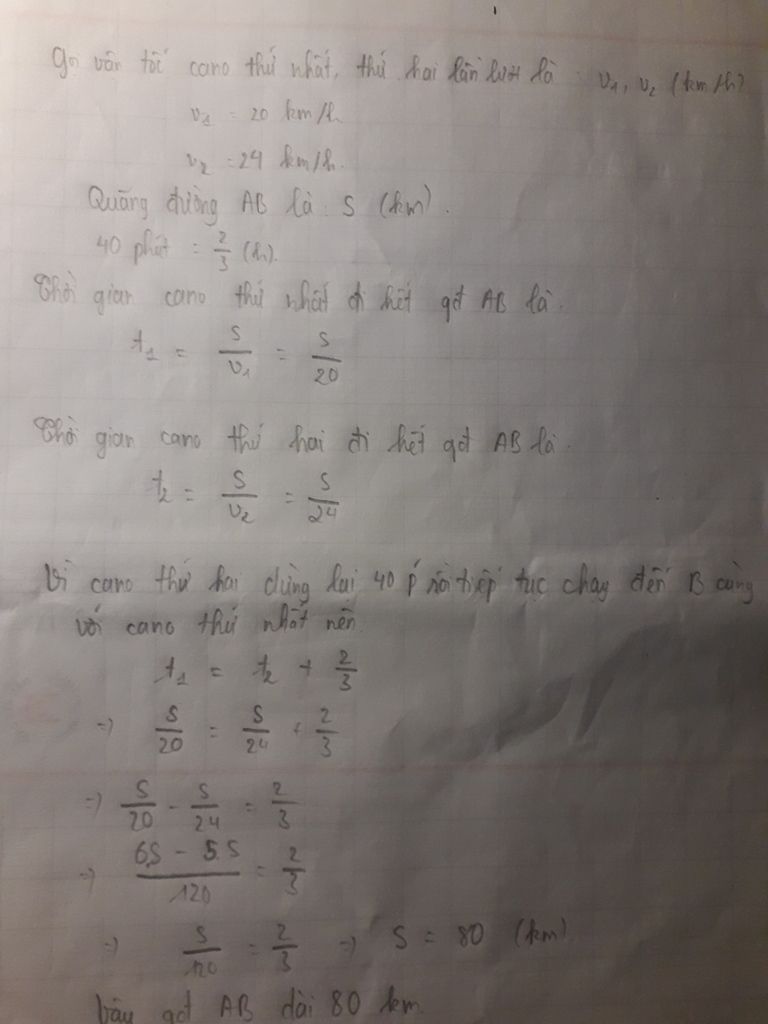 Gọi vận tốc cano thứ nhất, thứ hai lần lượt là : v₁, v₂ (km/h)
v₁ = 20 km/h
v₂ = 24 km/h.
Quãng đường AB là : S (km).
40 phút = 2/3 (h).
Thời gian cano thứ nhất đi hết qđ AB là.
t₁ = S/v₁ = S/20
Thời gian cano thứ hai đi hết qđ AB là.
t₂ = S/v₂ = S/24
Vì cano thứ hai dừng lại 40 p rồi tiếp tục chạy đến B cùng
với cano thứ nhất nên
t₁ = t₂ + 2/3
=> S/20 = S/24 + 2/3
=> S/20 - S/24 = 2/3
=> (6S - 5S)/120 = 2/3
=> S/120 = 2/3 => S = 80 (km)
Vậy qđ AB dài 80 km.